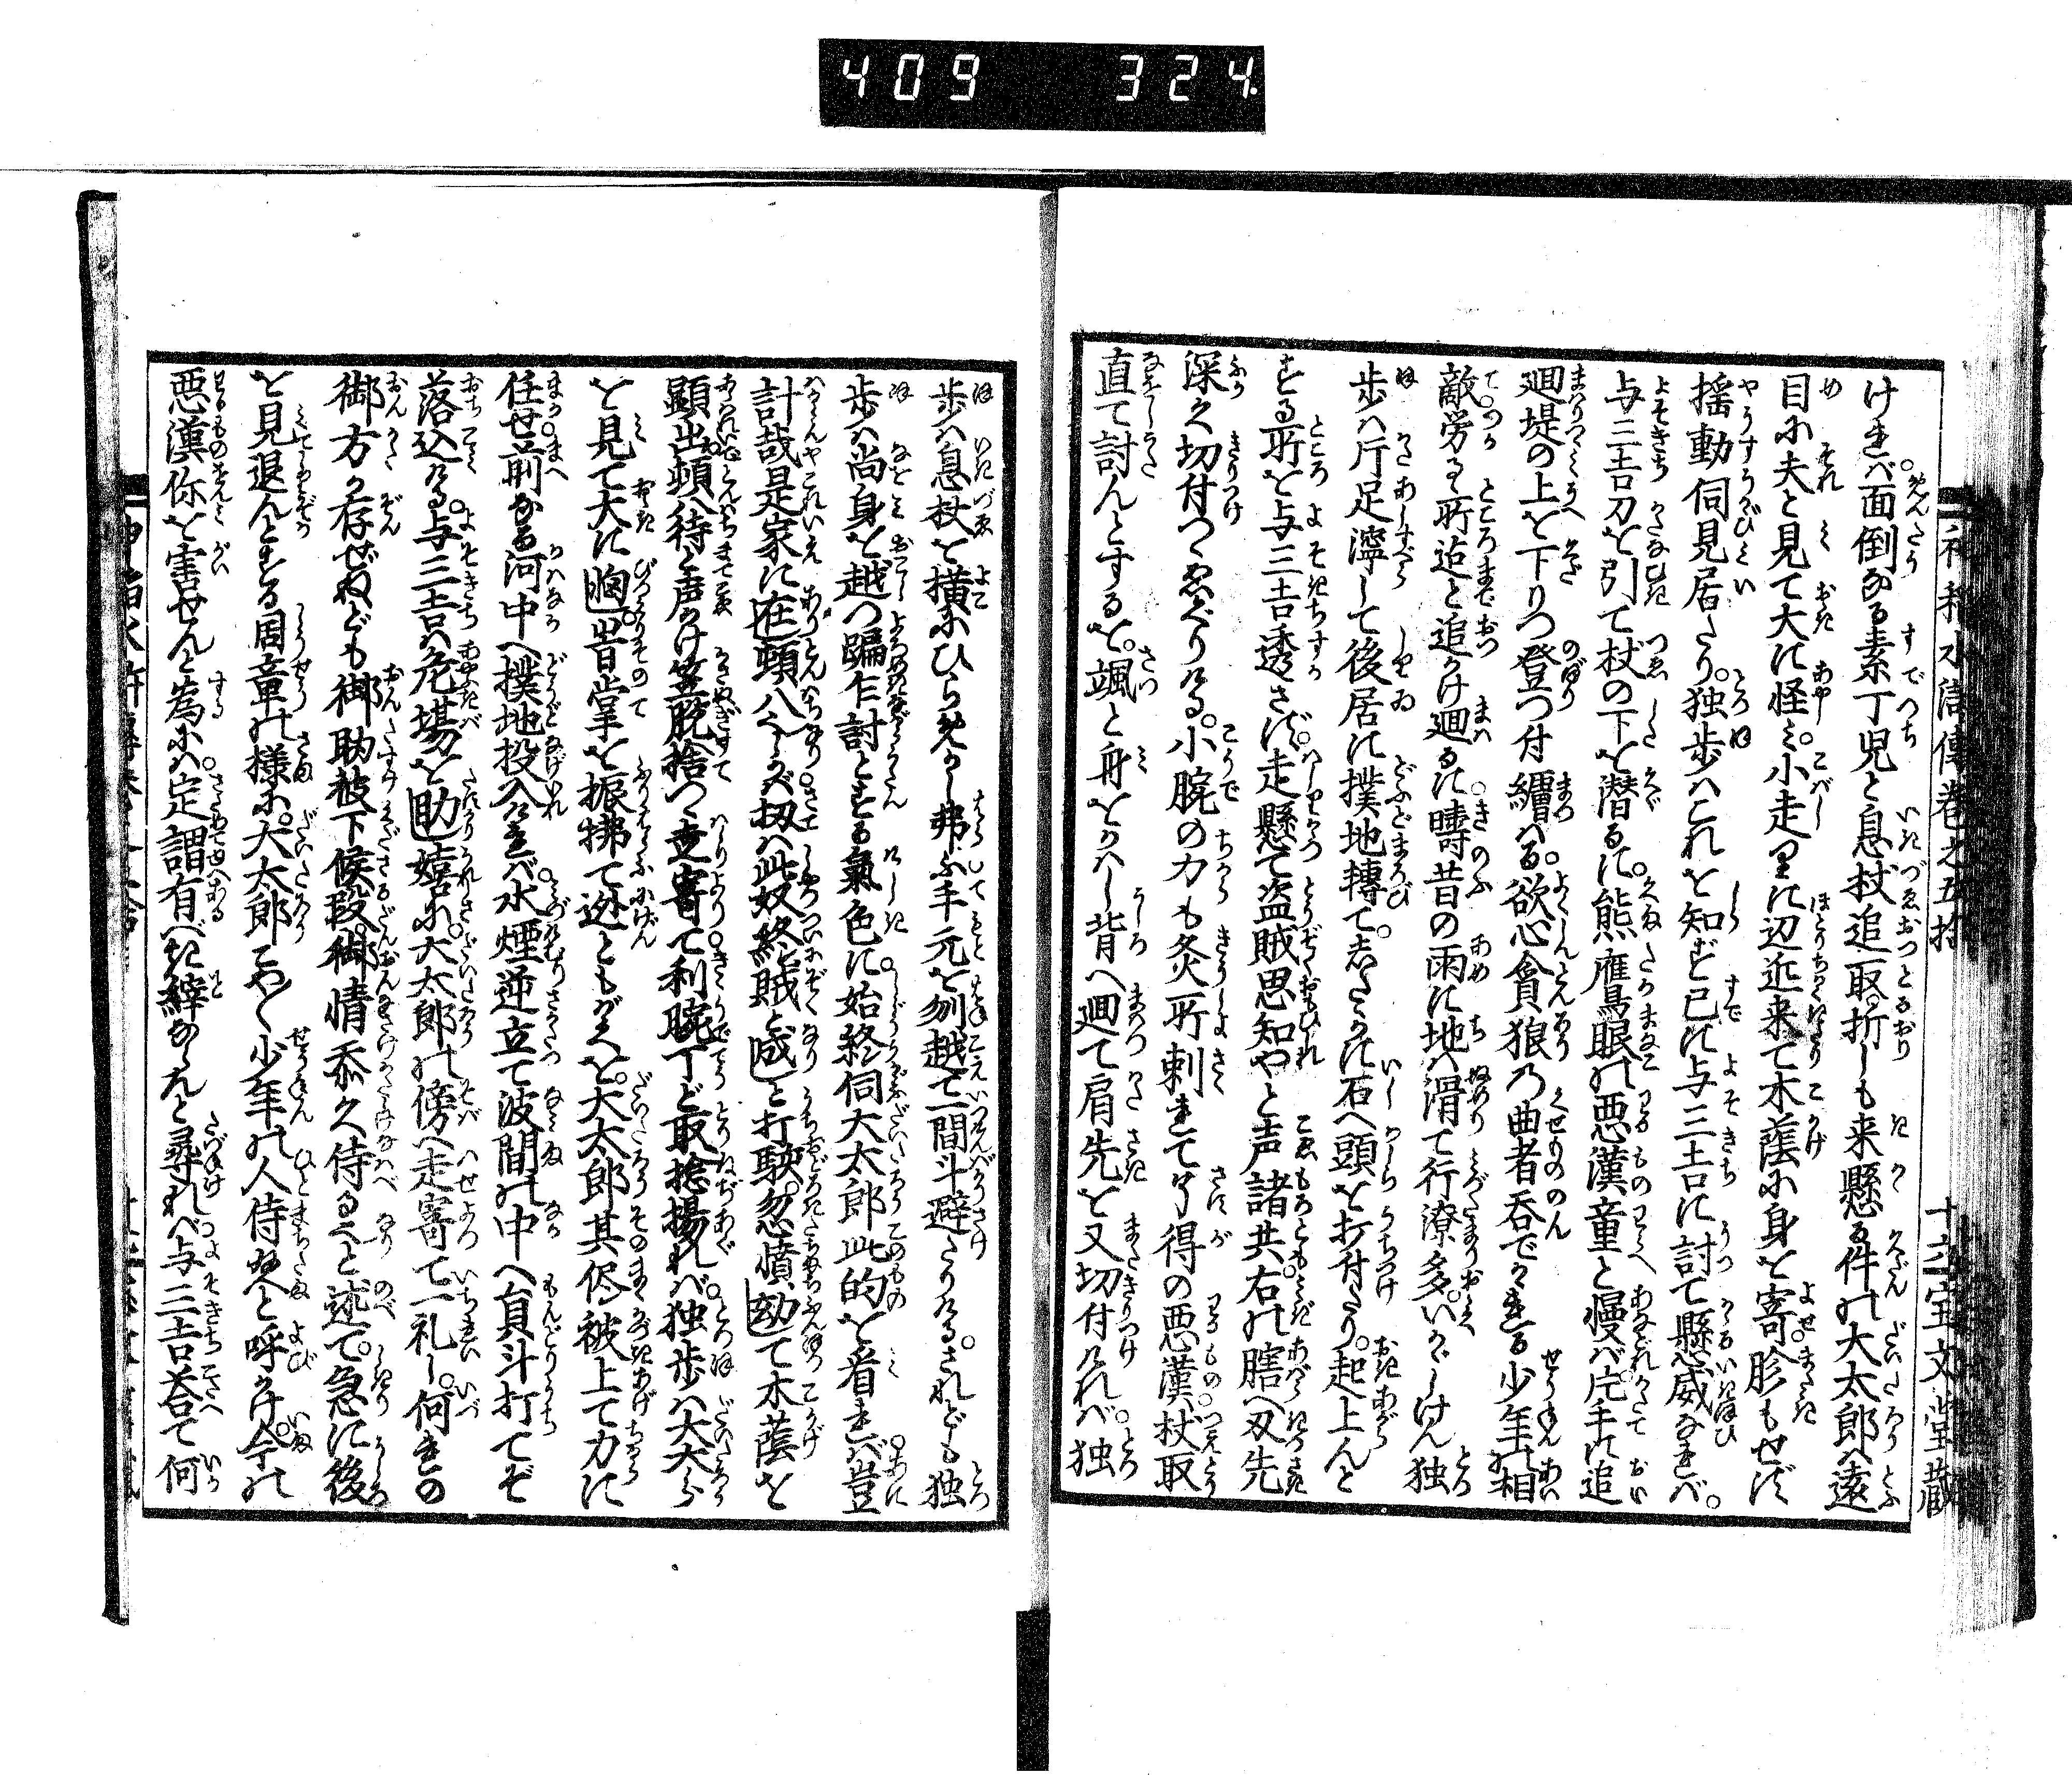 409 324.
神稲水滸傳巻之五拾
十六 宝文堂蔵
けれバ面倒なる素丁児と息杖追取折しも来懸る件の大太郎ハ遠
目に夫と見て大に怪ミ小走りに辺近来て木蔭に身を寄胗もせず
揺動伺見居たり。独歩ハこれを知ず已に与三吉に討て懸威なれバ。
与三吉刀を引て杖の下を潜るに。熊鷹眼の悪漢童と慢バ片手に追
廻堤の上を下りつ登つ付纏ハる。欲心貪狼の曲者呑でかゝる少年の相
敵労る所迄と追かけ廻るに疇昔の雨に地ハ滑て行潦多。いかゞしけん独
歩ハ片足濘して後居に撲地轉て。したゝかに石へ頭を打付たり。起上んと
する所を与三吉透さず。走懸て盗賊思知やと声諸共。右の膳へ刄先
深く切付つゝゑぐりける。小腕の力も灸所刺れて得の悪漢。杖取
直て討んとするを。颯と身をかハし背へ廻て肩先を又切付ければ。独
歩ハ息杖を横にひらめかし弗ふ手元を刎越て一間斗避たりける。されども独
歩ハ尚身を越つ蹁乍討とする氣色に。始終伺大太郎此的を看れバ。豈
計哉是家に在頓八なり。扨ハ此奴終賊と成しと打駭。忽憤、勃て木蔭を
顕出頓八待と声かけ笠脱捨つゝ走寄て利腕丁ど取捻揚れバ。独歩ハ大太
を見て大に胸。皆掌を振拂て迯ともがくを。大太郎其侭被上て力に
任せ前なる河中へ撲地投入けれバ。水煙逆立て波間の中へ負斗打てぞ
落込ける。与三吉ハ危場を助嬉に。大太郎の傍へ走寄て一礼し。何れの
御方か存ぜねども御助被下候段。御情忝く侍るべと述て。急に後
を見退んとする周章の様に。大太郎こやく少年の人侍ねと呼かけ。今の
悪漢你を害せんと為にハ。定謂有べき縡ならんと尋れバ。与三吉答て何